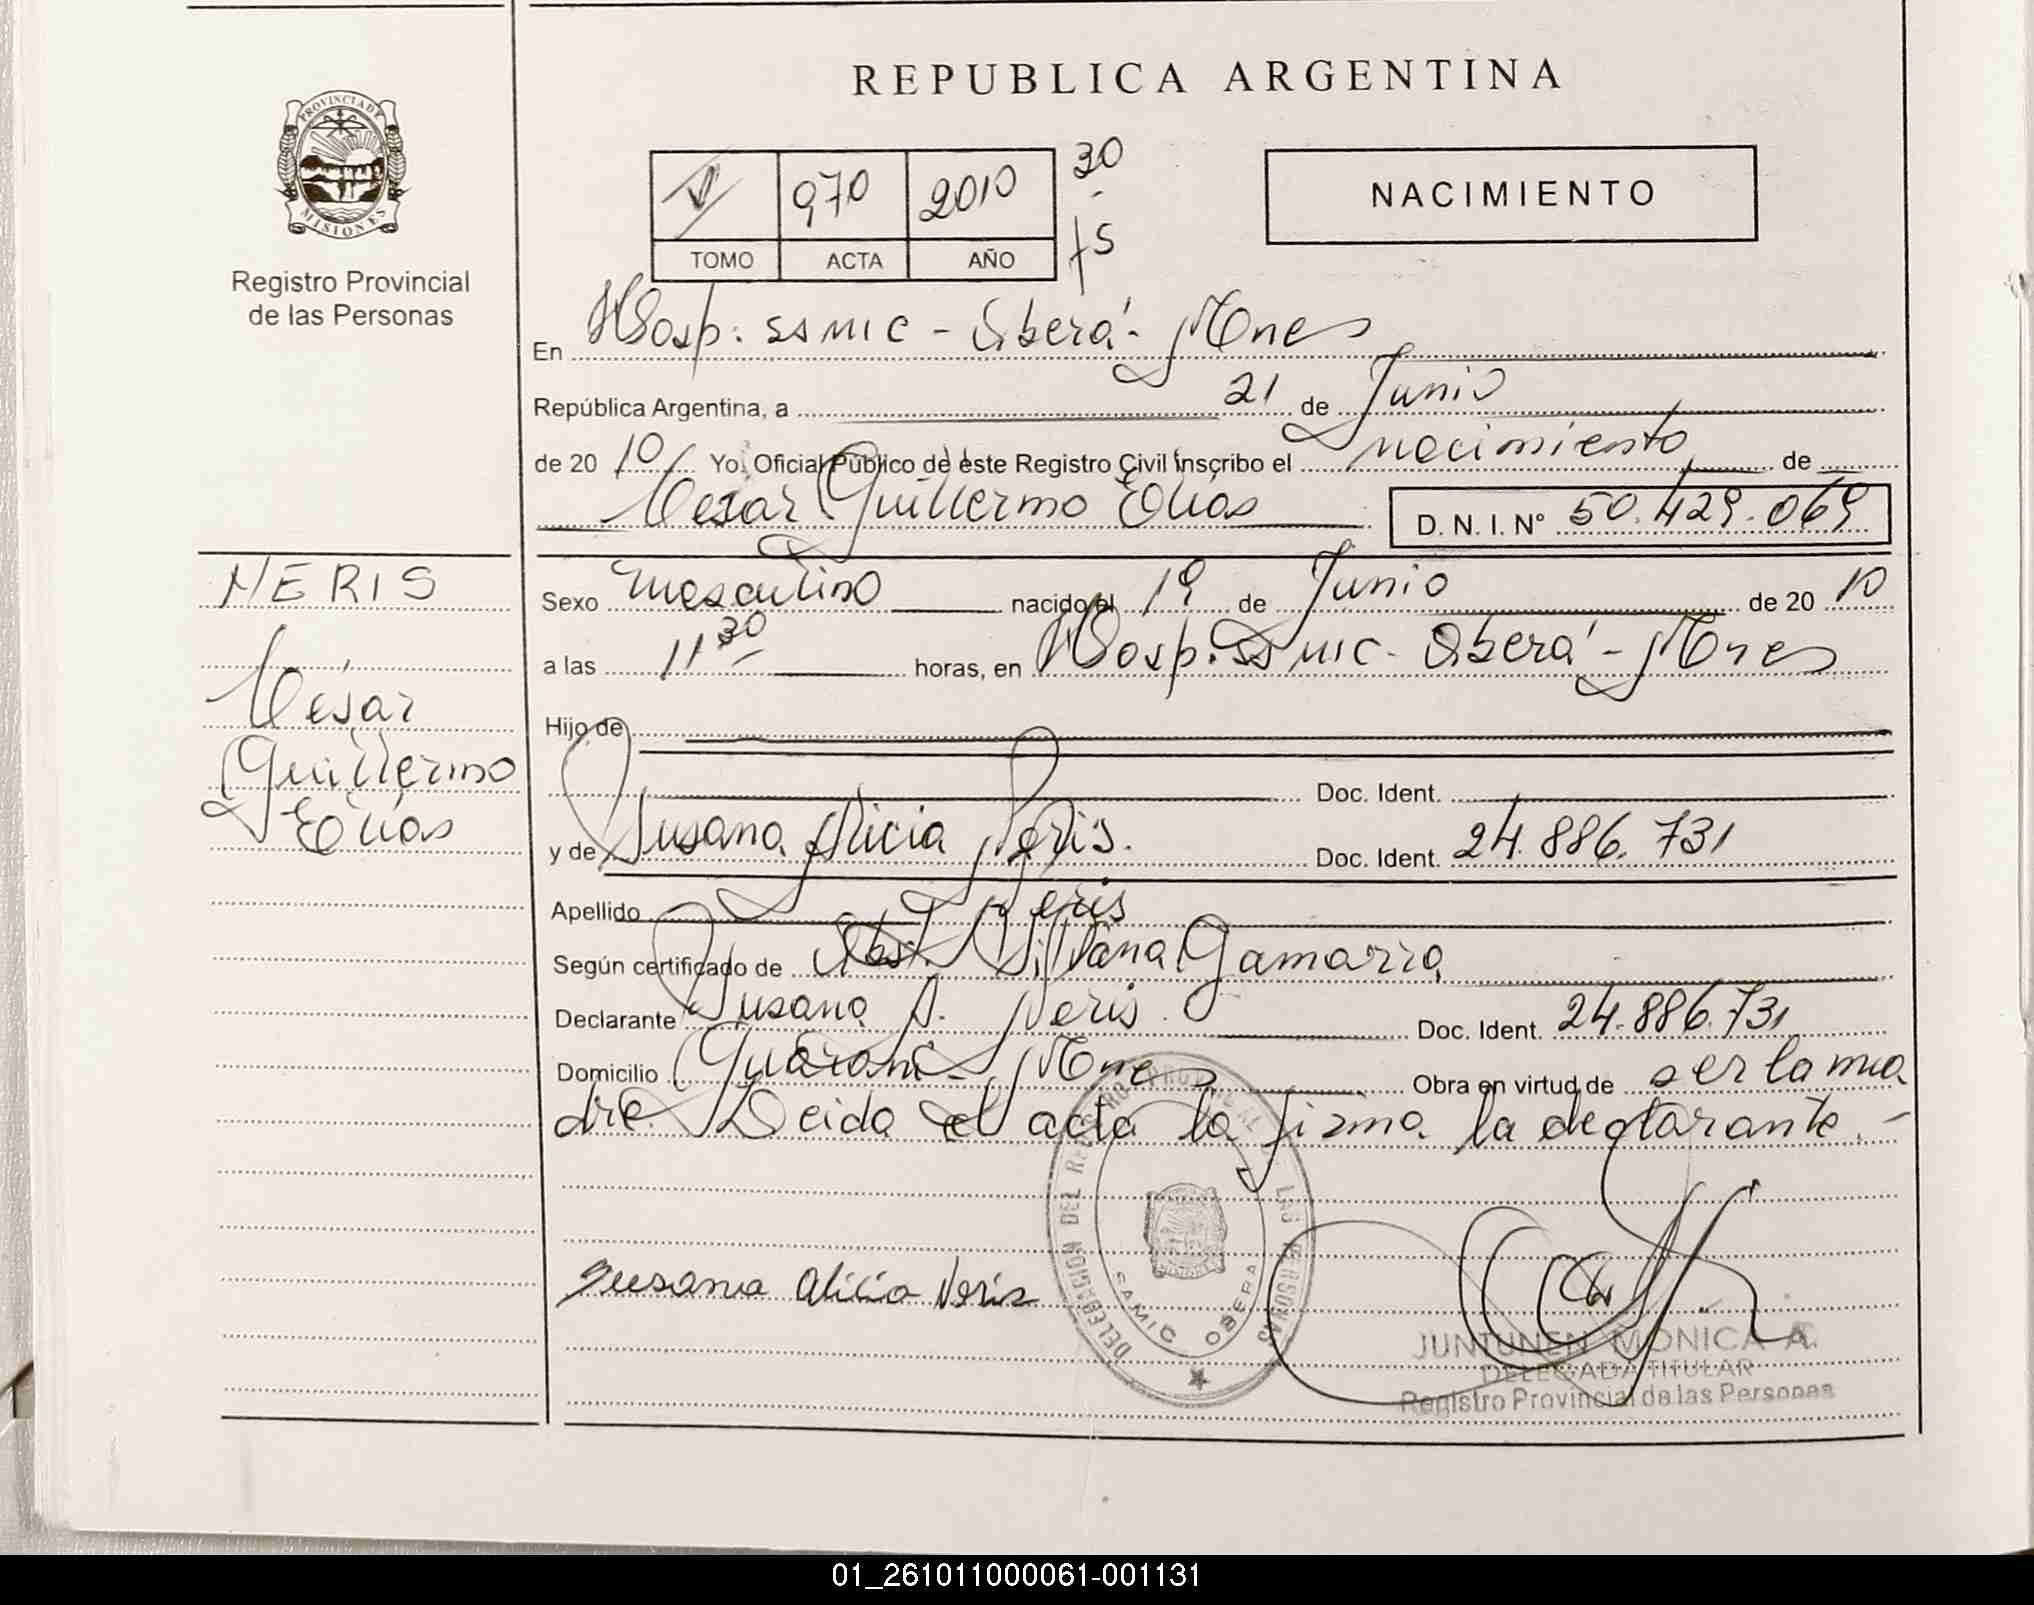 REPUBLICA ARGENTINA
PROVINCIA DE MISIONES
Registro Provincial
de las Personas
V 970 2010 30
TOMO ACTA AÑO
NACIMIENTO
En Hosp. SSMIC - Oberá - Mnes
República Argentina, a 21 de Junio
de 2010 Yo, Oficial Público de este Registro Civil inscribo el nacimiento de
César Guillermo Elías D. N. I. N° 50.429.069
NERIS
César
Guillermo
Elías
Sexo masculino nacido el 19 de Junio de 2010
a las 11 30 horas, en Hosp. SSMIC - Oberá - Mnes
Hijo de
Doc. Ident.
y de Susana Alicia Neris. Doc. Ident. 24.886.731
Apellido Neris
Según certificado de Obst. Silvana Gamarra
Declarante Susana A. Neris. Doc. Ident. 24.886.731
Domicilio Guaraní - Mnes Obra en virtud de ser la ma
dre. Leida el acta la firma la declarante. -
Susana Alicia Neris
DELEGACION DEL REGISTRO PROVINCIAL DE LAS PERSONAS
SAMIC OBERA
JUNTUNEN MONICA A.
DELEGADA TITULAR
Registro Provincial de las Personas
01_261011000061-001131